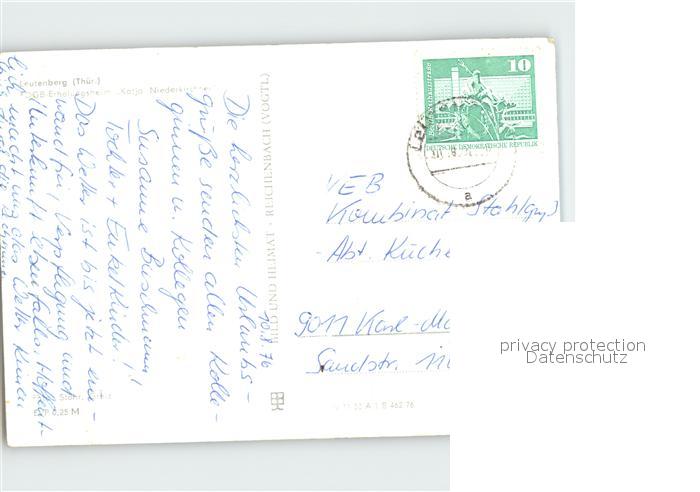 Leutenberg (Thür.)
FDGB-Erholungsheim „Katja Niederkirchner"
10.8.76
Die herzlichsten Urlaubs-
grüße senden allen Kolle-
ginnen u. Kollegen
Susanne
Tochter + Enkelkinder!
Das Wetter ist bis jetzt ein-
wandfrei, Verpflegung und
Unterkunft ebenfalls. Hoffent-
lich macht uns das Wetter keinen
BILD UND HEIMAT · REICHENBACH (VOGTL)
EVP 0,25 M
A 1 B 462 76
10
DEUTSCHE DEMOKRATISCHE REPUBLIK
a
VEB
Kombinat Stahlguß
Abt. Küche
9011 Karl-Ma
Sandstr. 11
privacy protection
Datenschutz